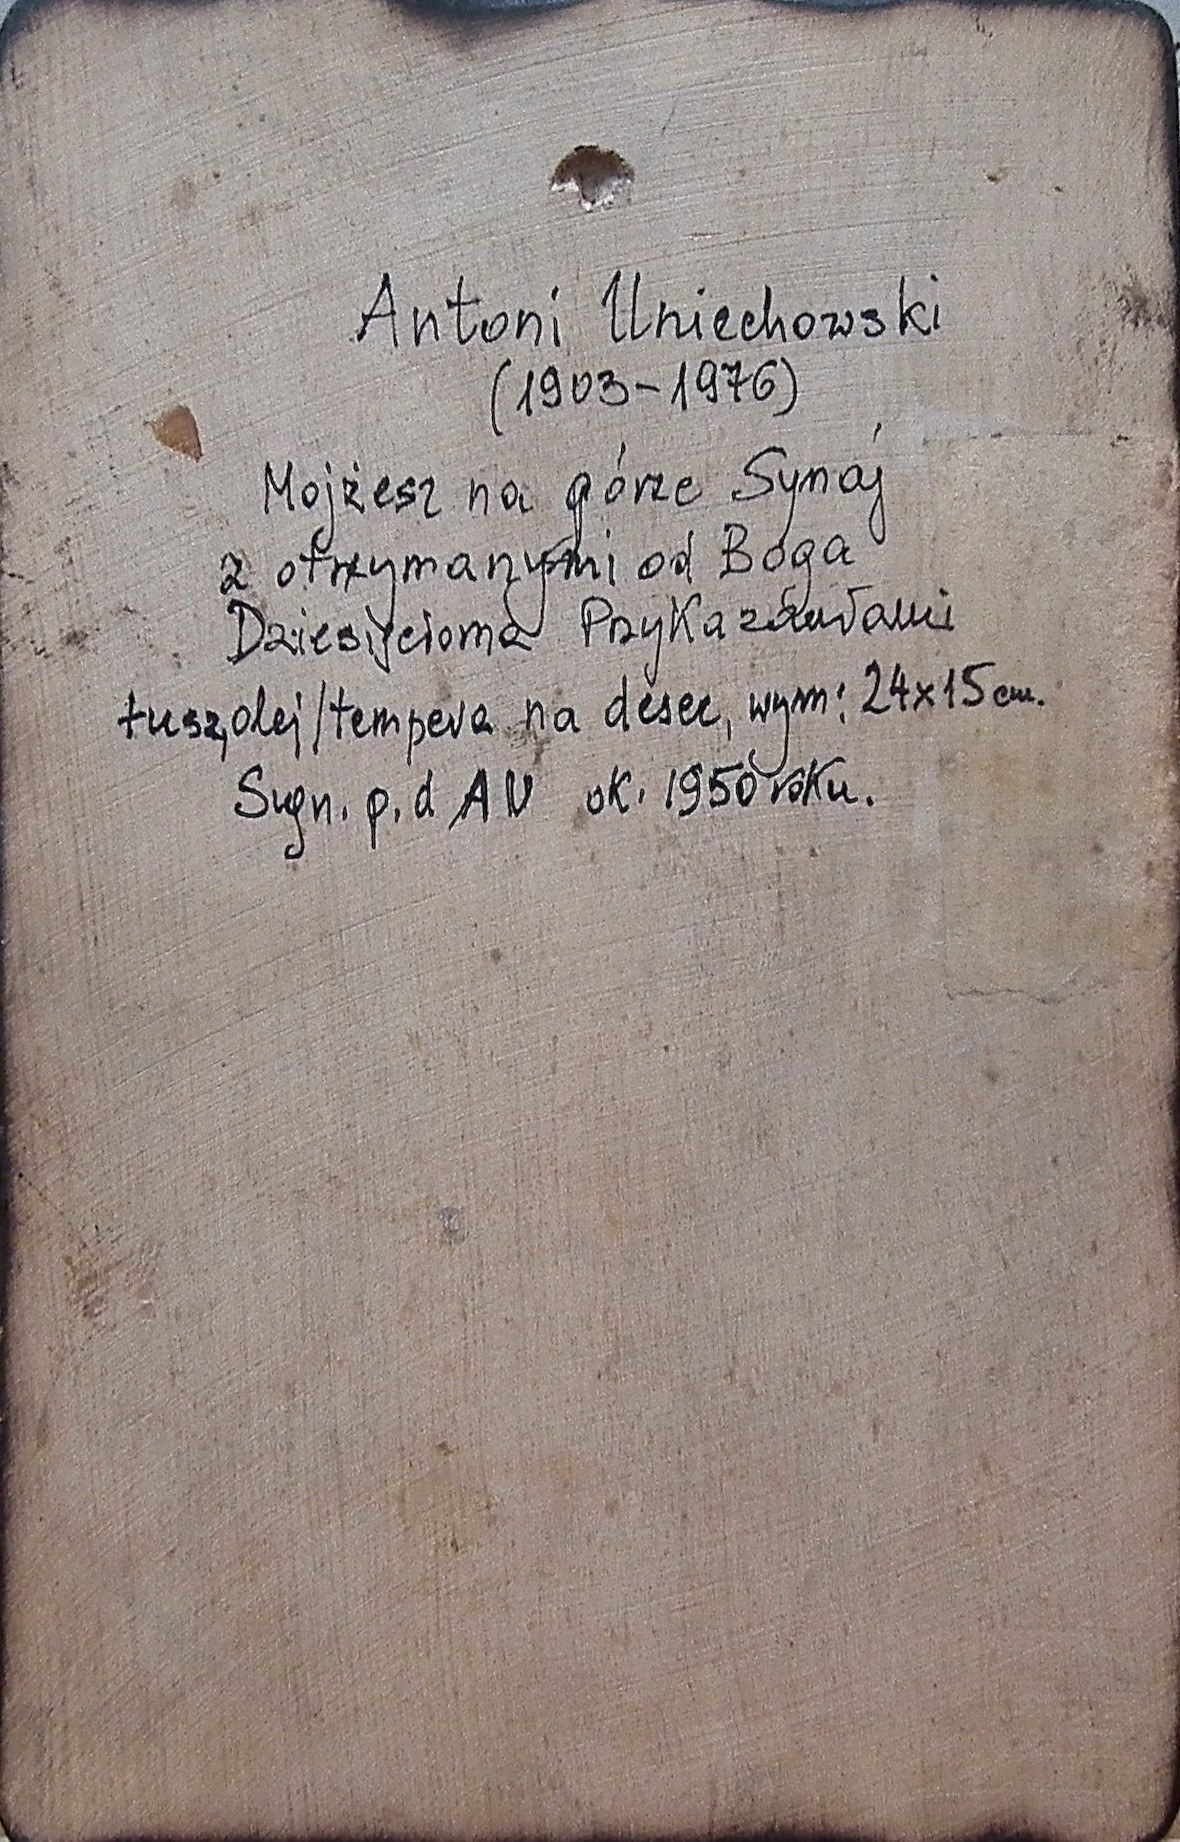 Antoni Uniechowski
(1903-1976)
Mojżesz na górze Synaj
z otrzymanymi od Boga
Dziesięcioma Przykazaniami
tusz, olej/tempera na desce, wym: 24x15 cm.
Sygn. p.d AU ok. 1950 roku.